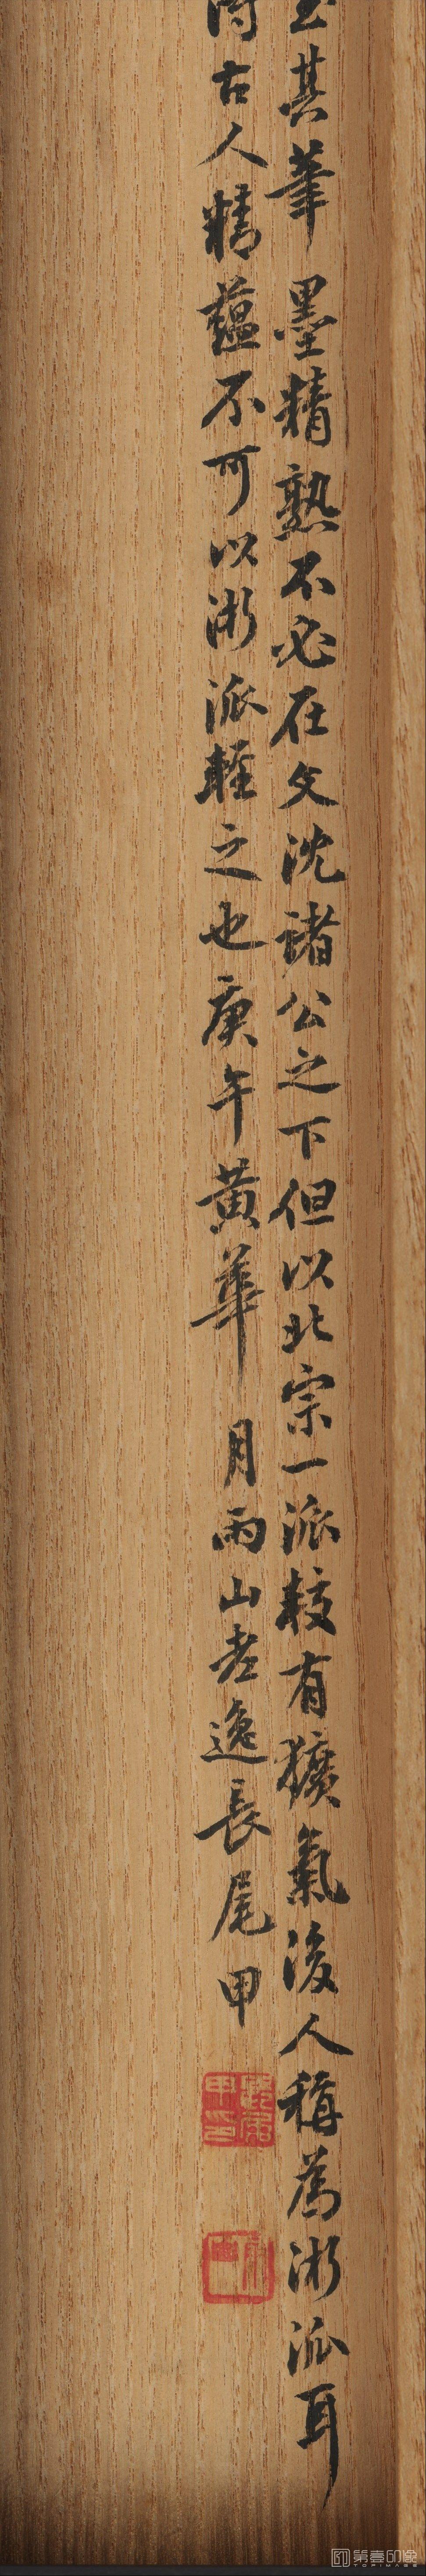 其筆墨精熟不必在文沈諸公之下但以北宗一派較有獷氣後人稱為浙派耳
古人精蘊不可以浙派輕之也庚午黃華月雨山老逸長尾甲
長尾甲印
第壹印像
TOPIMAGE